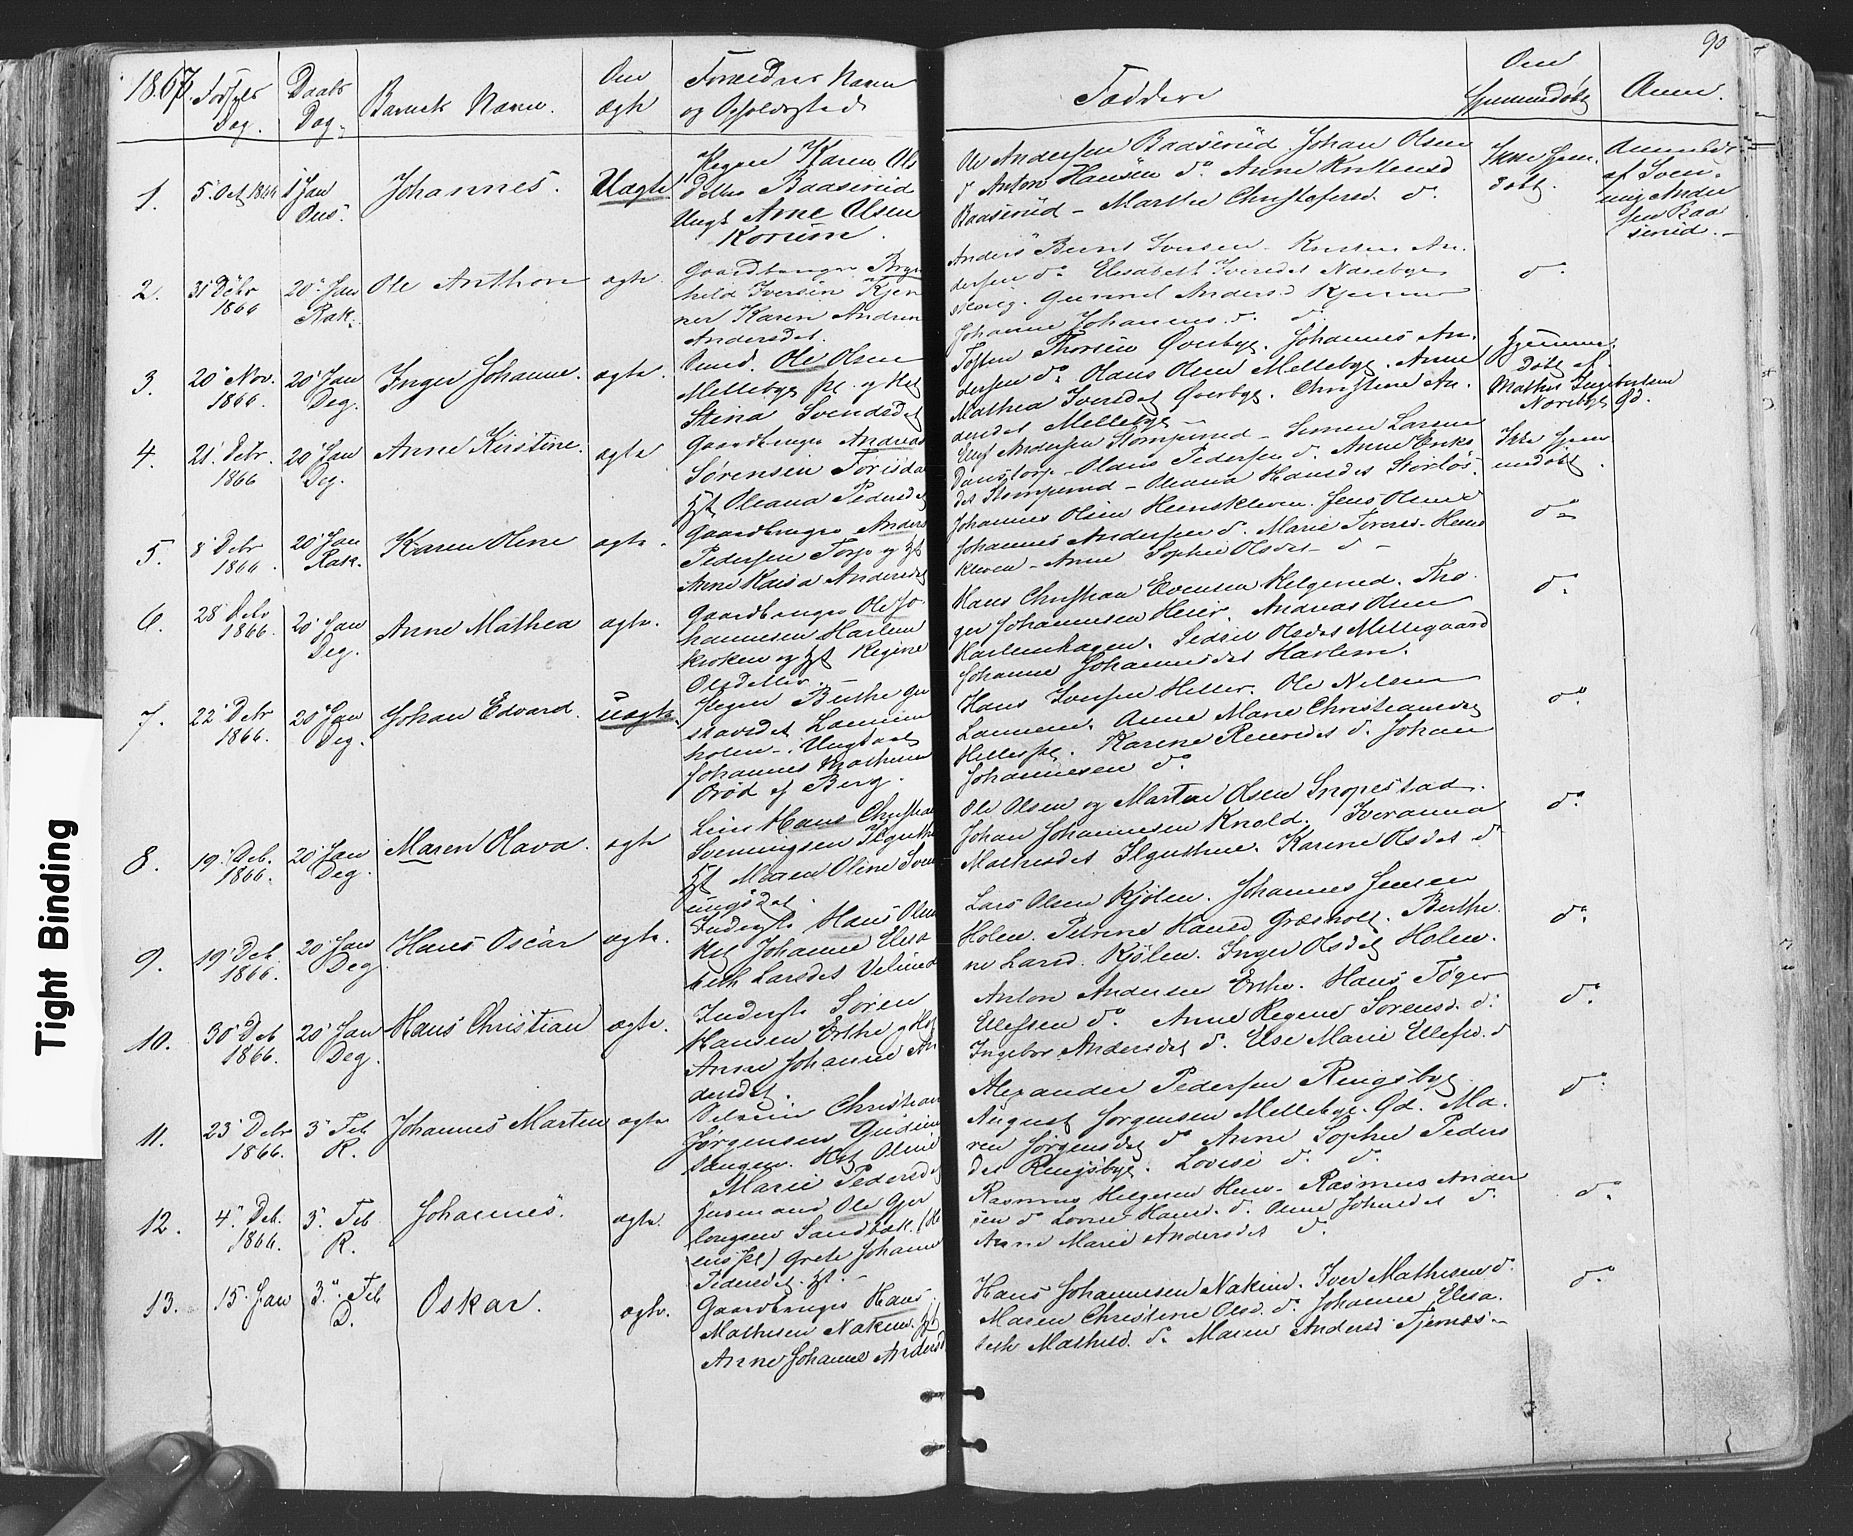 1867.
Fødsels Dag.
Daabs Dag.
Barnets Navn.
Om ægte
Forældres Navn
og Opholdssted
Faddere
Om
Hjemmedøbt
Anm.
90
1.
5 Oct 1866
1 Jan
Johannes.
Uægte
Pigen Karen Ols
datter Baaserud
Ungk Arne Olsen
Korum.
Ole Andersen Baaserud Johan Olsen
do Anton Hansen do. Anne Knutensd
Baaserud – Marthe Christofersd. do.
Ikke hjem.
døbt.
Anmeldt
af Sven.
ning Ander
sen Baa
serud.
2.
31 Debr
1866
20 Jan
Rak.
Ole Anthon
ægte.
Gaardbruger Bryn
hild Iversen Kjen
ner Karen Andrea
Andersdet.
Anders Bernt Iversen. Knut An.
dersen do Elisabeth Iversdet Næreby
Gunnil Andersd Kjenner
Johanne Johannes. d. d.
do.
3.
20 Nov.
1866.
20 Jan
Deg.
Inger Johanne.
ægte.
Ole Olsen
Melleby pl. og Hst
Stina Svendsdet
Toften Thorsen Øverby. Johannes An.
dersen do. Hans Olsen Melleby. Anne
Mathea Iversdet Øverby. Christine An.
dersdet Melleby
Hjemme
døbt af
Mathis Ingebretsen
Næreby Gd.
4.
21. Debr.
1866
20 Jan
Deg.
Anne Kirstine.
ægte
Gaardbruger Andreas
Sørensen Torsdal
Hst Oleana Pedersdet
Elef Andersen Stomperud – Simen Larsen
Danstorp – Hans Pedersen do. Anne Eriks
det Stomperud – Oleana Hansdet Storløs.
Ikke hjem
medøbt.
5.
8 Debr
1866
20 Jan
Rak.
Karen Oline
ægte.
Gaardbruger Anders
Pedersen Torp og Hst
Anne Kaisa Andersdet
Johannes Olsen Heinskleven. Jens Olsen
Johannes Andersen do. Marie Toresd. Heins
kleven – Anne Sophie Olsdet – do –
do
6.
28 Debr
1866.
20 Jan
Deg.
Anne Mathea
ægte.
Gaardbruger Ole Jo
hannesen Harlem
kroken og Hst Regine
Olsdatter.
Hans Christian Evensen Helgerud. Tho
ger Johannesen Heier. Andreas Olsen
Harlemhagen. Sidsel Olsdet Mellegaard
Johanne Johannesdet Harlem.
do.
7.
22 Debr
1866.
20 Jan
Deg.
Johan Edvard.
uægte.
Pigen Berthe Gu
stavsdet Lannem
holm – Ungkarl
Johannes Mathisen
Brød af Berg.
Hans Iversen Heller. Ole Nilsen
Lannem. Anne Marie Christiansdet
Hellerpl. Karine Reiersdet do. Johan
Johannesen do.
do
8.
19. Deb.
1866.
20 Jan
Deg.
Maren Olava.
ægte
Leier Hans Christian
Svenningsen
Hst Maren Oline Sven
ningsdet.
Ole Olsen og Marten Olsen Snopestad.
Johan Johannesen Knold. Iveranna
Mathisdet. Karine Olsdet do
do.
9.
19 Deb.
1866.
20 Jan
Deg
Hans Oscar
ægte.
Inderste Hans Olsen
Hst Johanne Elisa
beth Larsdet
Lars Olsen Kjølen. Johannes Jensen
Holen. Petrine Hansd Græsholt. Berthe
ne Larsd. Kjølen. Inger Olsdet Holen.
do.
10.
30 Deb
1866.
20 Jan
Deg.
Hans Christian
ægte.
Inderste Søren
Hansen Erthe og Hst
Anne Johanne An
dersdet.
Anton Andersen Erthe. Hans Tøger
Ellefsen do. Anne Regine Sørensd. do.
Ingebor Andersdet do. Else Marie Ellefsd. do
do.
11.
23 Debr
1866.
3 Feb
R.
Johannes Marten
ægte
Christian
Jørgensen Gudim
sangen. Hst Oline
Marie Pedersdet
Alexander Pedersen Ringsby
August Jørgensen Melleby. Gd. Ma.
ren Jørgensdet do Anne Sophie Peders
det Ringsby. Lovise do. do.
do.
12.
4. Deb.
1866.
3. Feb
R.
Johannes.
ægte.
Husmand Ole Gjer
løugsen Sandbæk. (He
iens pl) Grete Johanne
Pedersdet. Hst. –
Rasmus Helgesen Heier. Rasmus Ander
sen do Lovise Hansd. do. Oline Johnsdet do.
Anne Marie Andersdet do.
do.
13.
15 Jan
3. Feb
D.
Oskar.
ægte.
Gaardbruger Hans
Mathisen Nakim. Hst
Anne Johanne Andersd
Hans Johannesen Nakim. Iver Mathisen do.
Maren Christine Olsd. do. Johanne Elisa.
beth Mathisd. do. Maren Andersd Tjernæs –
do.
Tight Binding